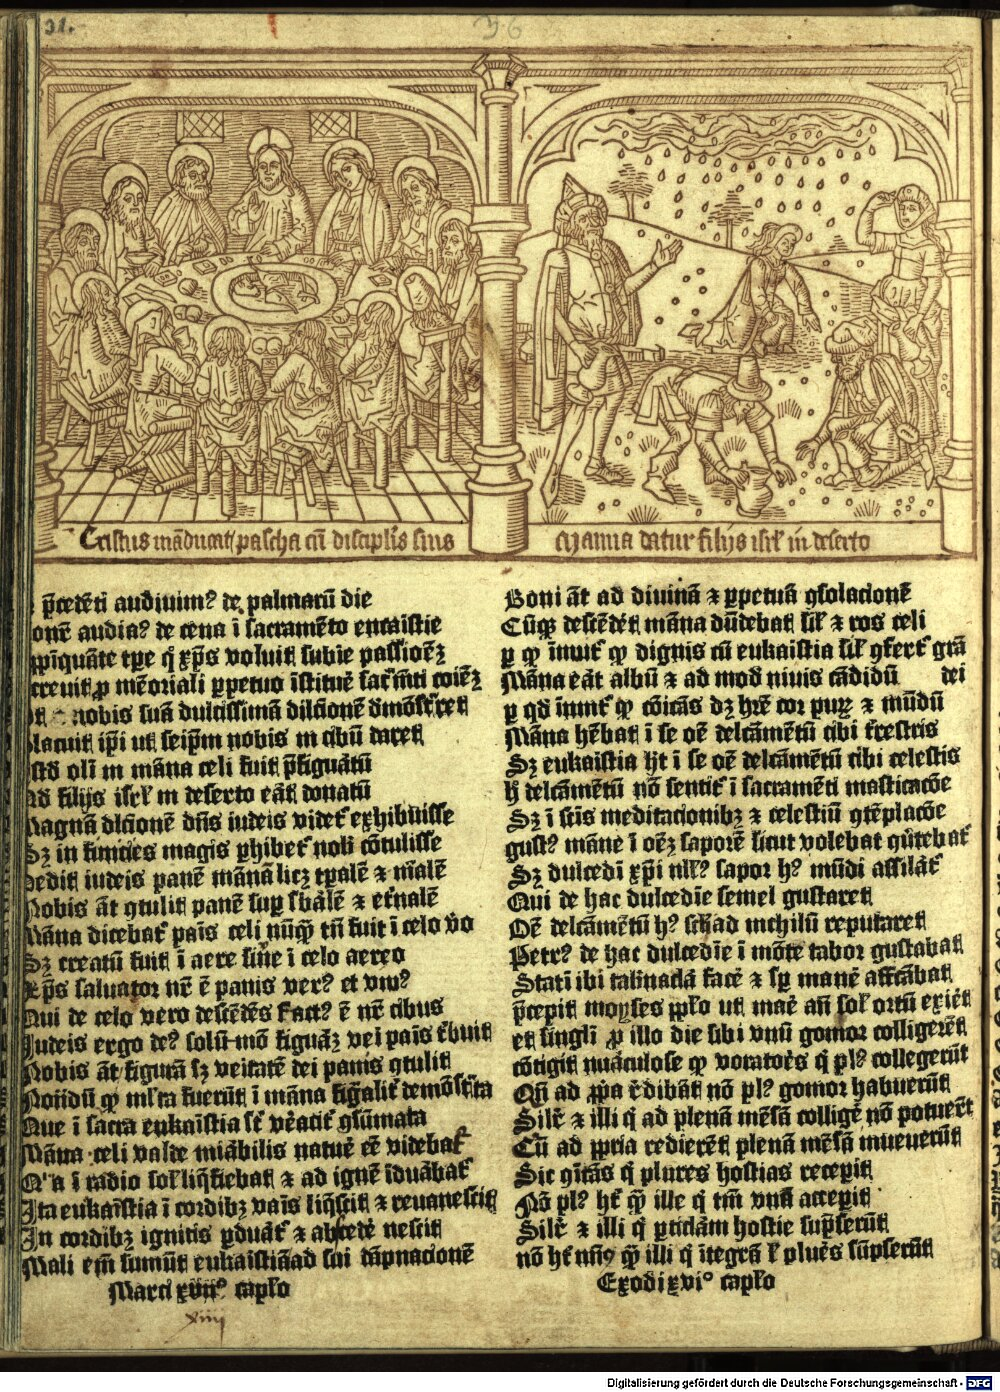 31.
36
Cristus māducat pascha cū discipl'is suis
Manna datur filijs isrl' in deserto
p̄cedēti audiuim⁹ de palmarū die
audia⁹ de cena ī sacramēto eucaīstie
voluit subire passionēȝ
mēoriali ꝑpetuo īstituē
nobis suā dulcissimā dilcīonē dmōstraret
Placuit ip̄i ut seip̄m nobis in cibū daret
Istd olī in māna celi fuit p̄figuātū
Qd filijs isrl' in deserto eāt donatū
Magnā dlcīonē dn̄s iudeis videt' exhibuisse
Sȝ in finities magis ꝑhibet' nobi cōtulisse
Dedit iudeis panē mānā licȝ tꝑalē ⁊ mālē
Nobis āt ꝯtulit panē suꝑ sbālē ⁊ et'nalē
Māna dicebat' pāis celi nūq̄ tn̄ fuit ī celo v̄o
Sȝ creatū fuit ī aere siue ī celo aereo
Xp̄s saluator nr̄ ē panis ver⁹ et viu⁹
Qui de celo vero descēdēs fact⁹ ē nr̄ cibus
Iudeis ergo de⁹ solū mō figuāȝ vei paīs t'buit
Nobis āt figurā sȝ veitatē dei panis ꝯtulit
Notādū ꝙ ml'ta fuerūt ī māna fīgalit' demōst'ta
Que ī sacra eukaīstia st' vēacit' ꝯsūmata
Māna celi valde miābilis natuē eē videbat'
Q'a ī radio sol' liq̄fiebat ⁊ ad ignē īduābat'
Ita eukaīstia ī cordibȝ vaīs liq̄scit ⁊ euanescit
In cordibȝ ignitis ꝑduāt' ⁊ abscedē nescit
Mali em̄ sumūt eukaīstiā ad sui dāpnacionē
Marci xiiii° capl'o
xiiii
Boni āt ad diuinā ⁊ ꝑpetuā ꝯsolacionē
Cūqȝ descēdēt māna dūdebat sil' ⁊ ros celi
ꝑ ꝙ īnuit' ꝙ dignis cū eukaīstia sil' ꝯfert' grā
Māna eāt albū ⁊ ad mod niuis cādidū dei
ꝑ qd īnuit' ꝙ cōicās dȝ hr̄e cor puȝ ⁊ mūdū
Māna hēbat ī se oē delcāmētū cibi t'restris
Sȝ eukaīstia hȝt ī se oē delcāmētū cibi celestis
h' delcāmētū nō sentit' ī sacramēti masticacōe
Sȝ ī scīs meditacionibȝ ⁊ celestiū ꝯtēplacōe
gust⁹ māne ī oēȝ saporē sicut volebat q̄tebat'
Sȝ dulcedī xp̄i nll⁹ sapor h⁹ mūdi assilāt'
Qui de hac dulcedīe semel gustaret
Oē delcāmētū h⁹ seculi ad nichilū reputaret
Petr⁹ de hac dulcedīe ī mōte tabor gustabat
Statī ibi tabnaclā facē ⁊ sꝑ manē affcābat
p̄cepit moyses pplo ut manē an̄ sol' ortū exiēt
et singlī ꝓ illo die sibi vnū gomor colligerēt
cōtigit miāculose ꝙ voratores q̄ pl⁹ collegerūt
Qn̄ ad ꝓpa r̄dibāt nō pl⁹ gomor habuerūt
Silr̄ ⁊ illi q̄ ad plenā mēsā colligē nō potuēt
Cū ad ꝓpria redierēt plenā mēsā inuenerūt
Sic ꝯicās q̄ plures hostias recepit
Nō pl⁹ ht' q̄ ille q̄ tm̄ vnā accepit
Silr̄ ⁊ illi q̄ ꝑticlam hostie sūpserūt
nō ht' min⁹ q̄ illi q̄ itegrā l' plues sūpserūt
Exodi xvi° capl'o
Digitalisierung gefördert durch die Deutsche Forschungsgemeinschaft - DFG